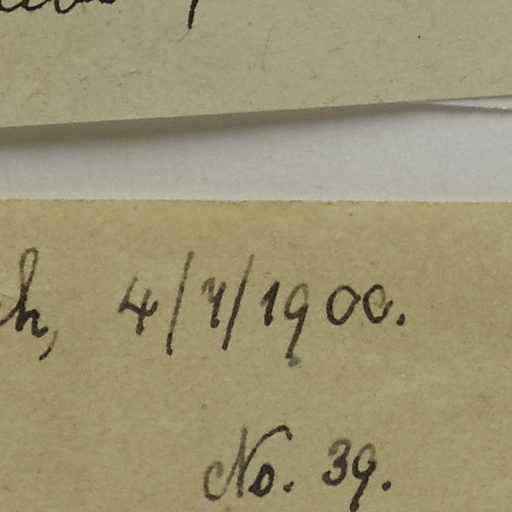 4/7/1900.
No. 39.